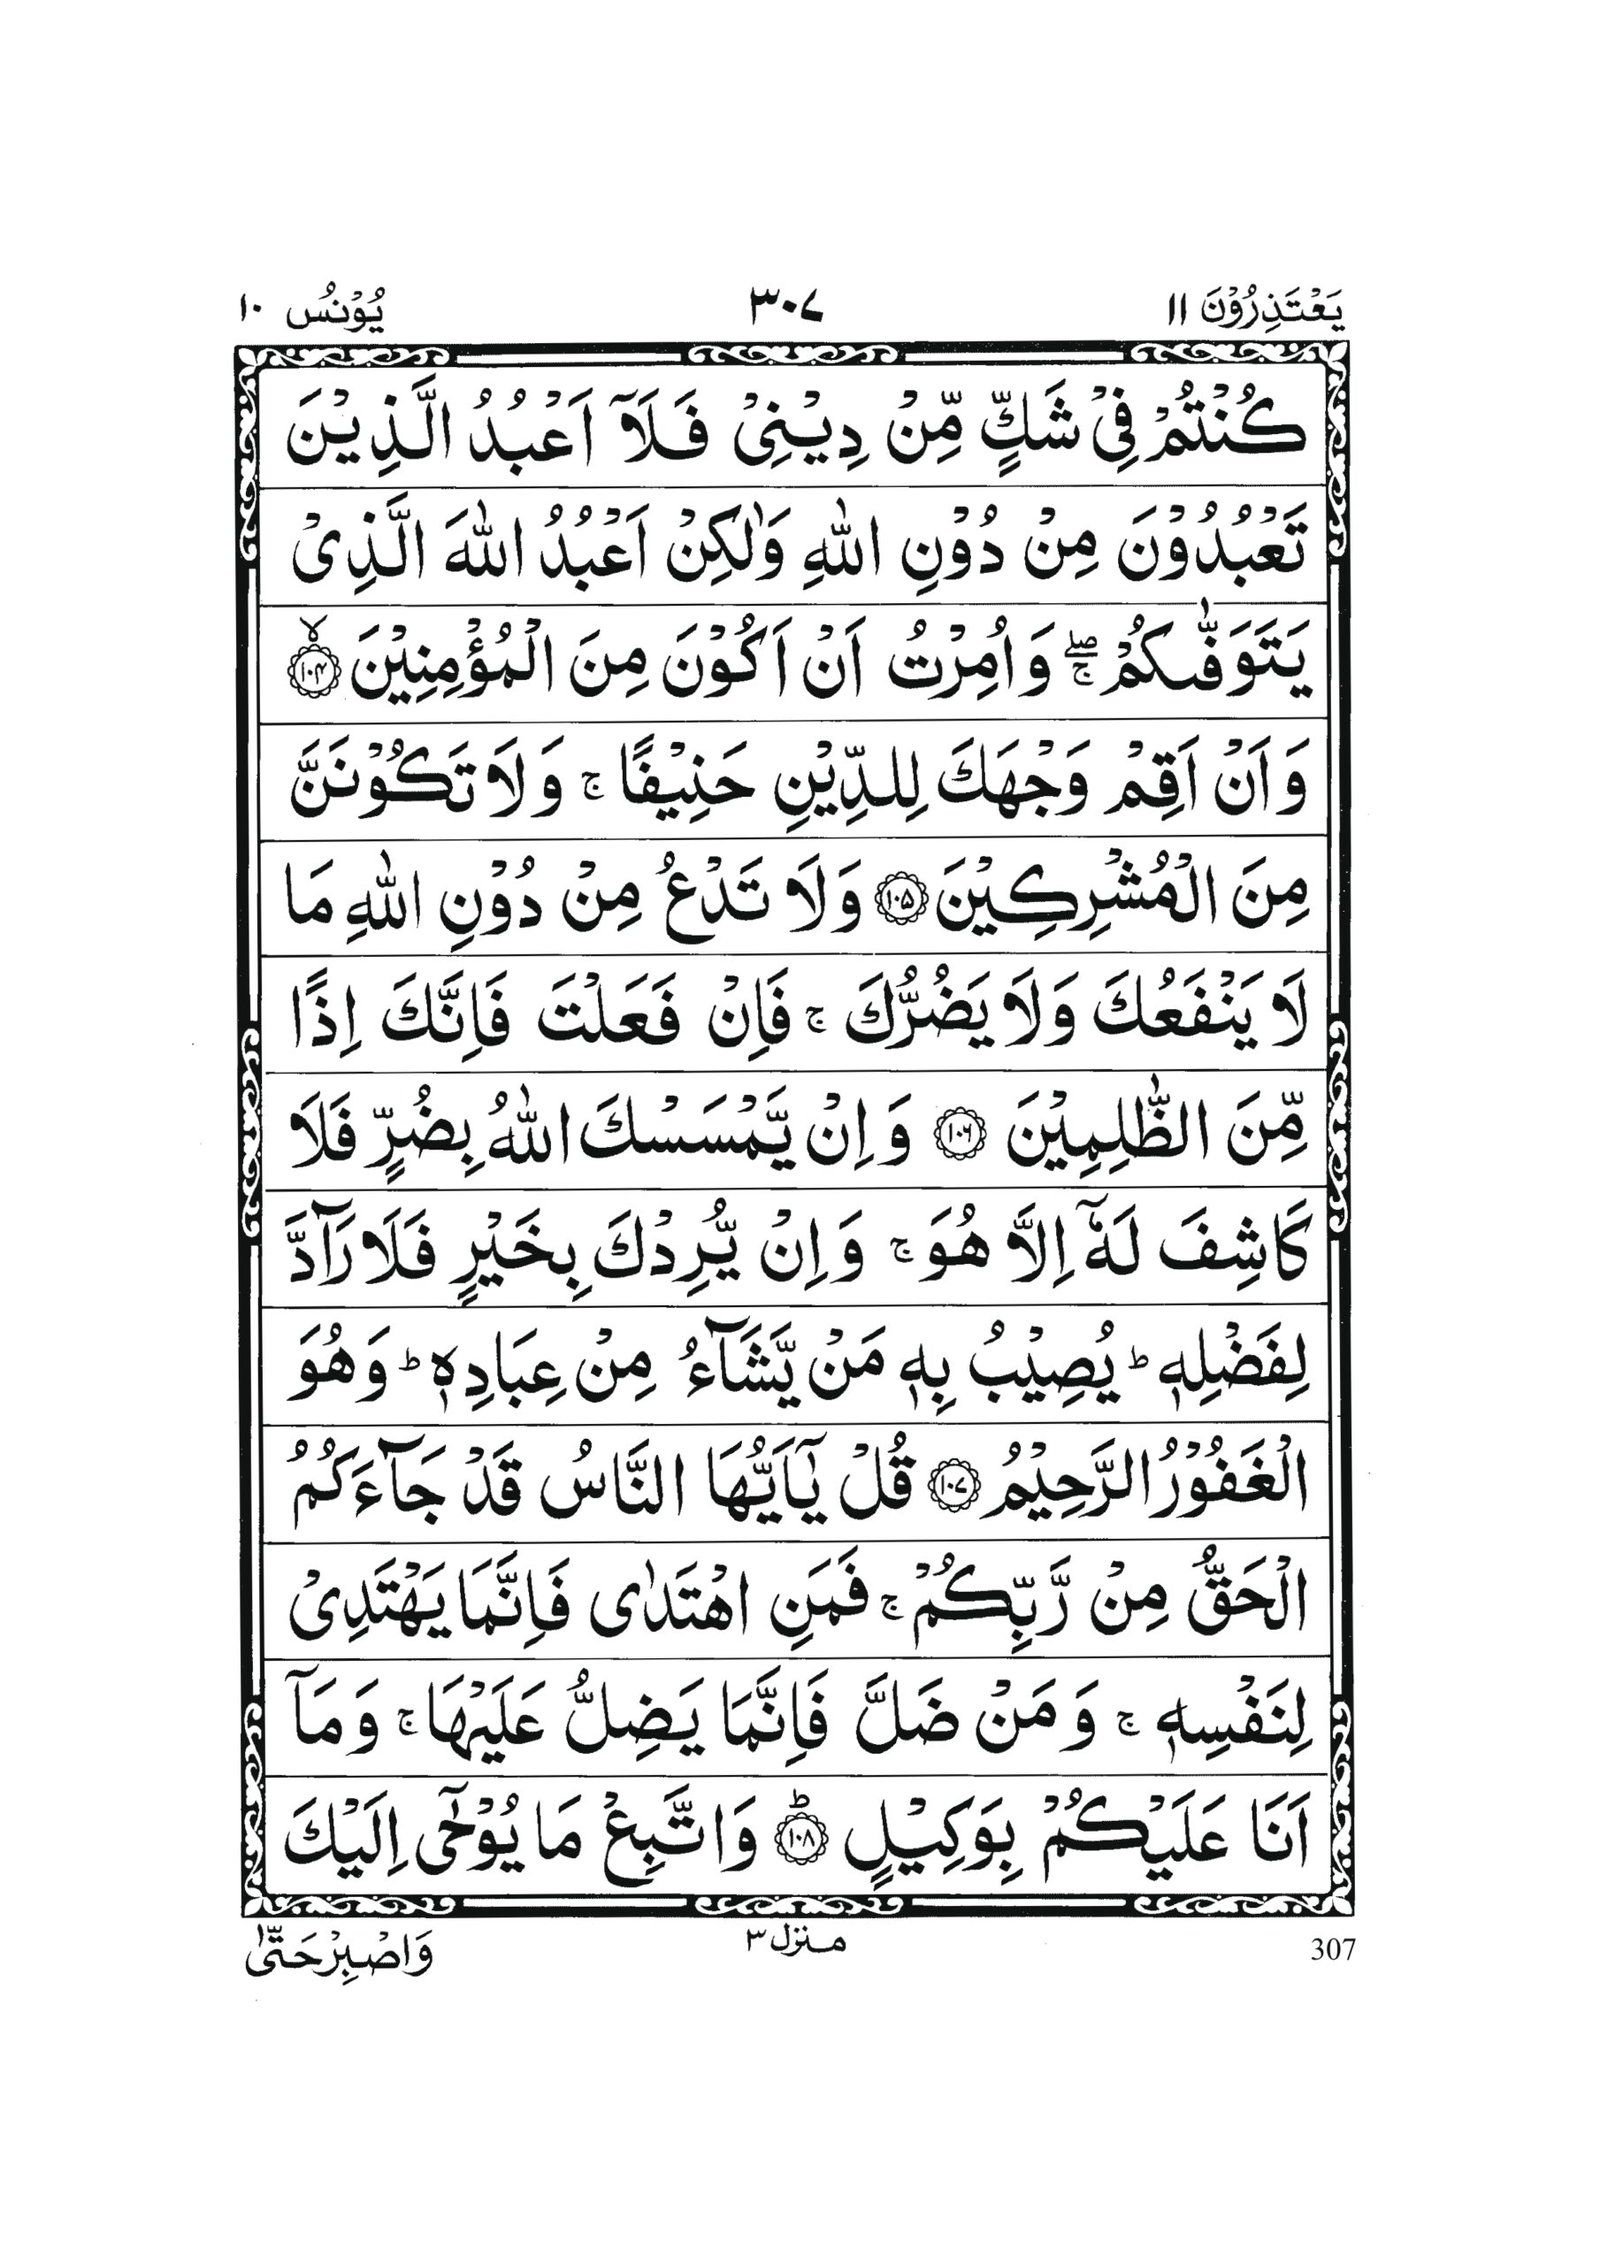 يَعْتَذِرُوْنَ ۱۱ ۳۰۷ يُوْنُس ۱۰
كُنْتُمْ فِيْ شَكٍّ مِّنْ دِيْنِيْ فَلَآ اَعْبُدُ الَّذِيْنَ
تَعْبُدُوْنَ مِنْ دُوْنِ اللّٰهِ وَلٰكِنْ اَعْبُدُ اللّٰهَ الَّذِيْ
يَتَوَفّٰىكُمْ ۖۚ وَاُمِرْتُ اَنْ اَكُوْنَ مِنَ الْمُؤْمِنِيْنَ ۙ‏﴿۱۰۴﴾
وَاَنْ اَقِمْ وَجْهَكَ لِلدِّيْنِ حَنِيْفًا ۚ وَلَا تَكُوْنَنَّ
مِنَ الْمُشْرِكِيْنَ ﴿۱۰۵﴾ وَلَا تَدْعُ مِنْ دُوْنِ اللّٰهِ مَا
لَا يَنْفَعُكَ وَلَا يَضُرُّكَ ۚ فَاِنْ فَعَلْتَ فَاِنَّكَ اِذًا
مِّنَ الظّٰلِمِيْنَ ﴿۱۰۶﴾ وَاِنْ يَّمْسَسْكَ اللّٰهُ بِضُرٍّ فَلَا
كَاشِفَ لَهٗٓ اِلَّا هُوَ ۚ وَاِنْ يُّرِدْكَ بِخَيْرٍ فَلَا رَآدَّ
لِفَضْلِهٖ ؕ يُصِيْبُ بِهٖ مَنْ يَّشَآءُ مِنْ عِبَادِهٖ ؕ وَهُوَ
الْغَفُوْرُ الرَّحِيْمُ ﴿۱۰۷﴾ قُلْ يٰٓاَيُّهَا النَّاسُ قَدْ جَآءَكُمُ
الْحَقُّ مِنْ رَّبِّكُمْ ۚ فَمَنِ اهْتَدٰى فَاِنَّمَا يَهْتَدِيْ
لِنَفْسِهٖ ۚ وَمَنْ ضَلَّ فَاِنَّمَا يَضِلُّ عَلَيْهَا ۚ وَمَآ
اَنَا عَلَيْكُمْ بِوَكِيْلٍ ؕ﴿۱۰۸﴾ وَاتَّبِعْ مَا يُوْحٰٓى اِلَيْكَ
307 منزل ۳ وَاصْبِرْ حَتّٰى